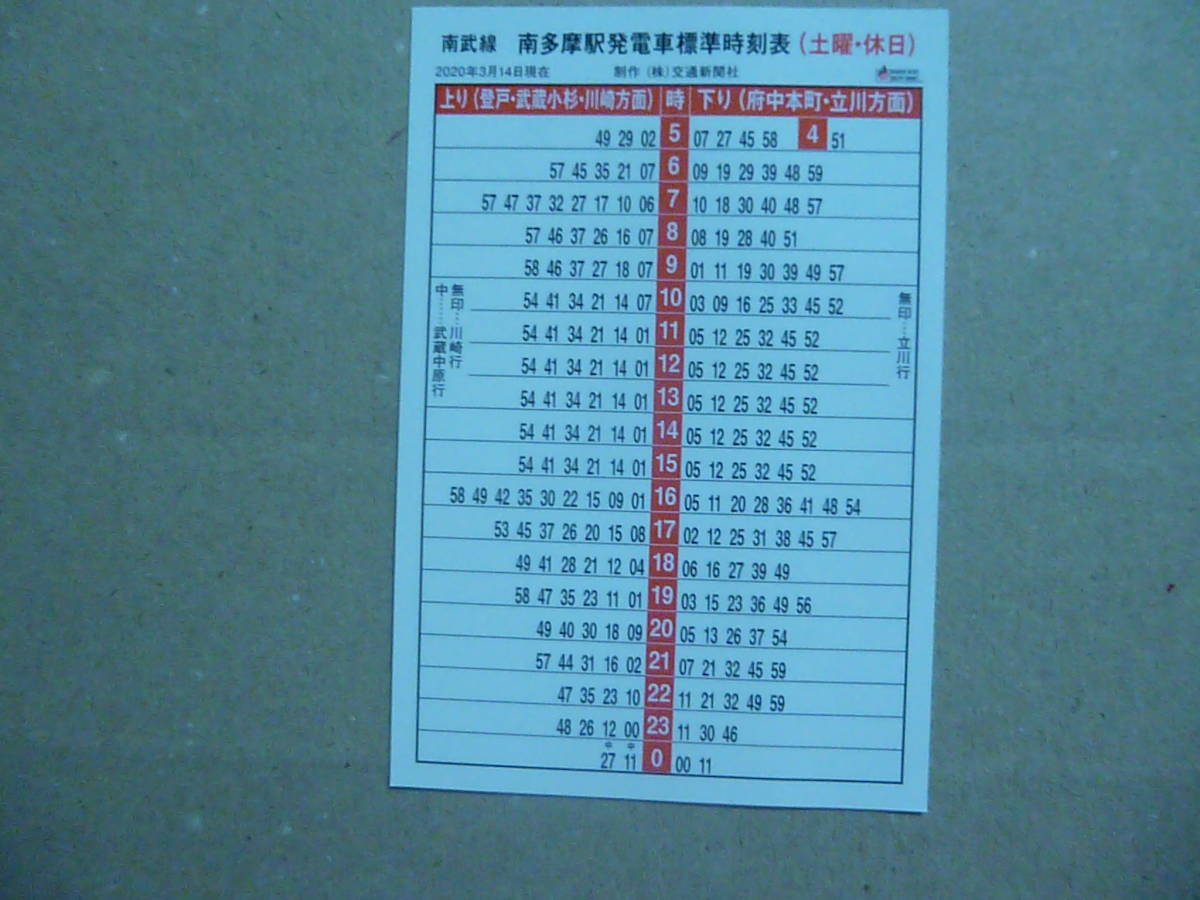 南武線 南多摩駅発電車標準時刻表(土曜・休日)
2020年3月14日現在 制作 (株)交通新聞社
上り(登戸・武蔵小杉・川崎方面) 時 下り(府中本町・立川方面)
49 29 02 5 07 27 45 58 4 51
57 45 35 21 07 6 09 19 29 39 48 59
57 47 37 32 27 17 10 06 7 10 18 30 40 48 57
57 46 37 26 16 07 8 08 19 28 40 51
58 46 37 27 18 07 9 01 11 19 30 39 49 57
54 41 34 21 14 07 10 03 09 16 25 33 45 52
54 41 34 21 14 01 11 05 12 25 32 45 52
54 41 34 21 14 01 12 05 12 25 32 45 52
54 41 34 21 14 01 13 05 12 25 32 45 52
54 41 34 21 14 01 14 05 12 25 32 45 52
54 41 34 21 14 01 15 05 12 25 32 45 52
58 49 42 35 30 22 15 09 01 16 05 11 20 28 36 41 48 54
53 45 37 26 20 15 08 17 02 12 25 31 38 45 57
49 41 28 21 12 04 18 06 16 27 39 49
58 47 35 23 11 01 19 03 15 23 36 49 56
49 40 30 18 09 20 05 13 26 37 54
57 44 31 16 02 21 07 21 32 45 59
47 35 23 10 22 11 21 32 49 59
48 26 12 00 23 11 30 46
中 中
27 11 0 00 11
無印…川崎行
中……武蔵中原行
無印…立川行